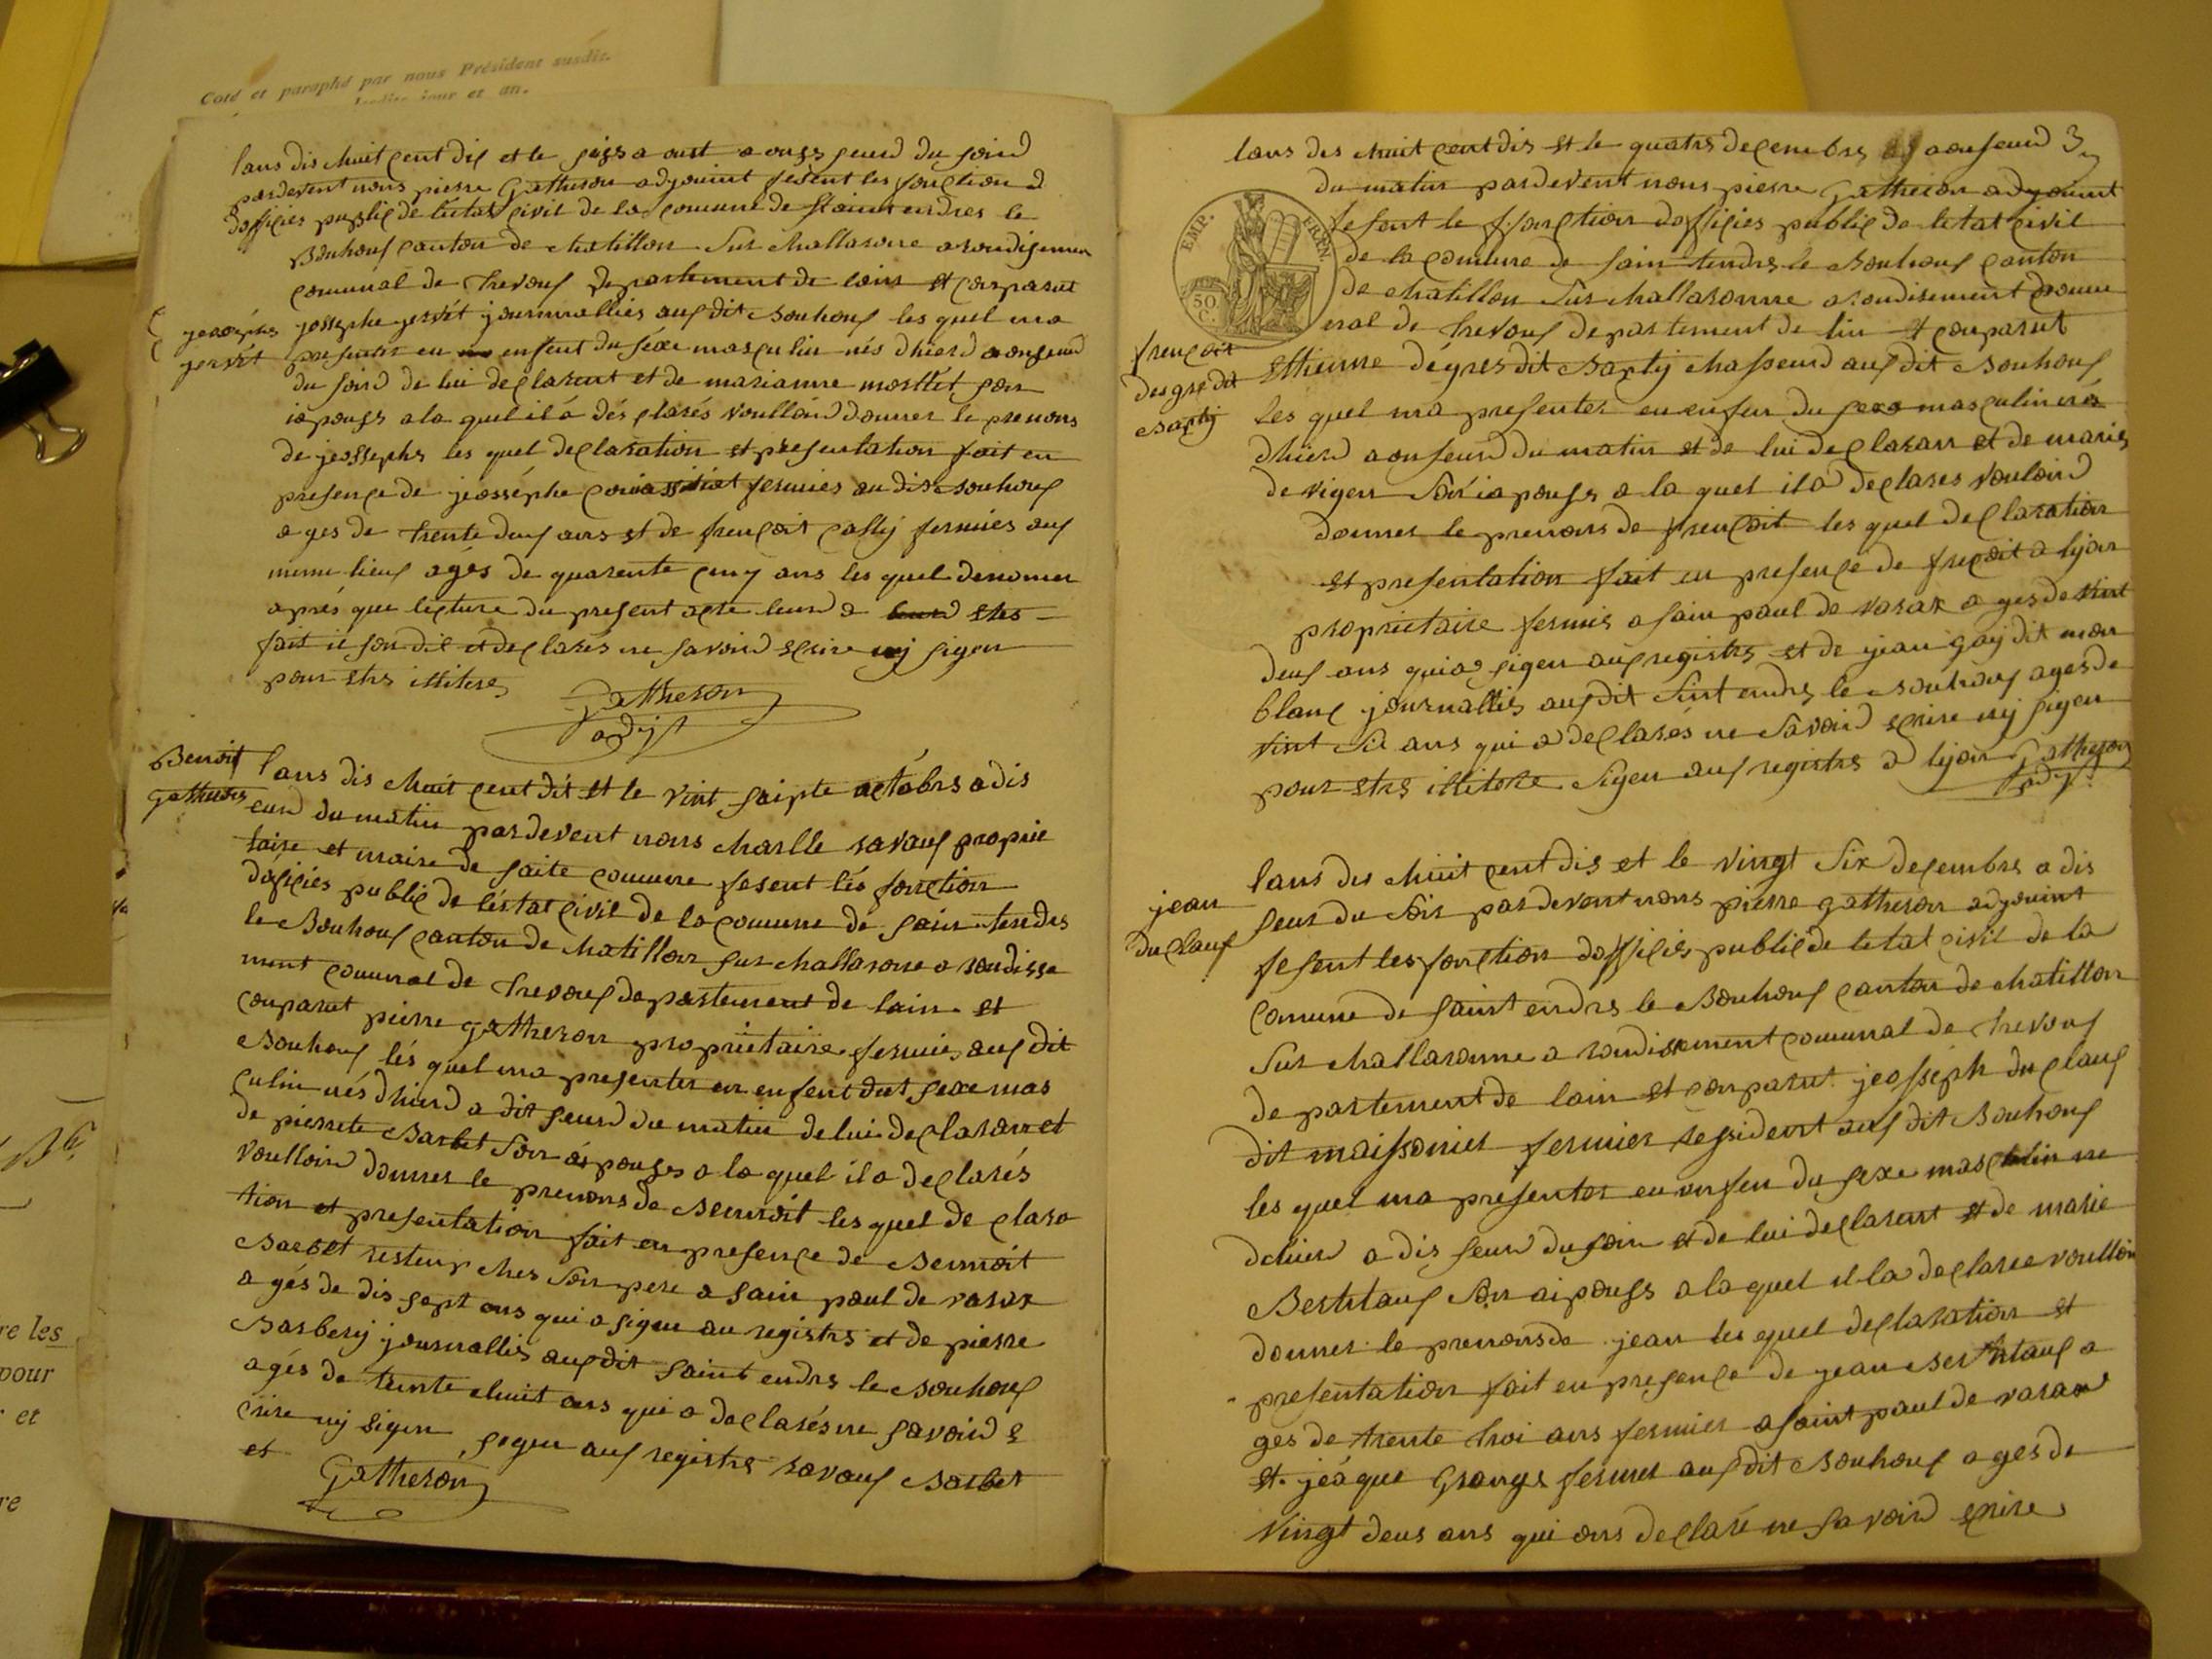 Coté et paraphé par nous Président susdit.
jour et an.
lans dis huit cent dis et le seize aoust a onze heurd du soird
pardevent nous pierre Gatheron adjouint fesent les fonction d
dofficies public de letat civil de la comune de saint endres le
Bouhouf canton de chatillon sur challaronne arondisemen
comunal de trevouf departement de lains et comparut
jeosephe
gervét
jossephe gervét journallies auf dit Bouhouf les quel ma
presenter eu enfent du séxe masculin nés dhierd a onzeurd
du soird de lui declarent et de marianne mortét son
iepouze a la quel il a dés clarés voulloird donner le prenons
de jeossephe les quel declaration et presentation fait en
presence de jeosséphe fermies au dit Bouhouf
ages de trente deuf ans et de frencoit fermies auf
meme lieuf agés de quarente cinq ans les quel denomer
aprés que lecture du present acte leurd a leurd etes
fait il son dit et declarés ne savoird ecrire nij signer
pour etre illitere
Gatheron
adjt
Benoit
Gatheron
lans dis huit cent dit et le vint saipte octobre a dis
eurd du matin pardevent nous charlle ravouf proprie
taire et maire de saite comune fesent lés fonction
dofficies public de léstat civil de la comune de sain tendres
le Bouhouf canton de chatillon sur challarone arondisse
ment comunal de trevouf departement de lain et
conparut pierre gatheron propriétaire fermies auf dit
Bouhouf lés quel ma presenter eu enfent dut sexe mas
culin nés dhierd a dit heurd du matin de lui declaran et
de pierrete Barbet son épouze a la quel il a declarés
voulloird donner le prenons de Bennoit les quel de clara
tion et presentation fait en presence de Bennoit
Barbet resteur ches son pere a sain paul de varax
agés de dis sept ans qui a signe au registre et de pierre
Barberij journallies auf dit saint endres le Bouhouf
agés de trente chuit ans qui a declarés ne savoird e
crire nij signer signer auf registre ravouf Barbet
et Gatheron
lans dis chuit cent dis et le quatre decembre a onseurd 3
du matin pardevent nous pierre Gatheron adyouint
EMP. FRAN.
50
C.
fesent le fonction dofficies public de letat civil
de la comune de sain tendre le Bouhouf canton
de chatillon sur challaronne arondisement comu
nal de trevouf departement de lin et conparut
frencoit
degre dit
Barlij
Ethienne degres dit Barlij chasseurd auf dit Bouhouf
les quel ma presenter eu enfen du sexe masculin nés
dhierd a onseurd du matin et de lui declaran et de marie
de vigen son iapouze a la quel il a declares vouloird
donner le prenons de frencoit les quel declaration
et presentation fait en presence de frecoit a lijon
propriétaire fermie a sain paul de varax ages de vint
deuf ans quia signer auf registre et de jean gay dit mon
blanc journallies auf dit Sint endre le Bouhouf ages de
vint sis ans qui a declarés ne savoird ecrire nij signer
pour etre illitere Signer auf registre a lijon Gatheron
adjt
jean
du clauf
lans dis chuit cent dis et le vingt six decembre a dis
heur du soir pardevent nous pierre gatheron adjouint
fesent les fonction dofficies public de letat civil de la
comune de saint endres le Bouhouf canton de chatillon
sur challaronne arondissement comunal de trevouf
departement de lain et conparut jeosseph du clauf
dit maissonier fermier ressident auf dit Bouhouf
les quel ma presenter eu enfen du sexe masculin ne
dchier a dis heurd du soir et de lui declarent et de marie
Berthlauf son aipouze a la quel il la declaree voulloir
donner le prenons de jean les quel declaration et
presentation fait en presence de jean Berthlauf a
ges de trente troi ans fermier a saint paul de varax
et jeaque Grange fermer auf dit Bouhouf ages de
vingt deus ans qui ons declaré ne savoird ecrire
re les
pour
et
re